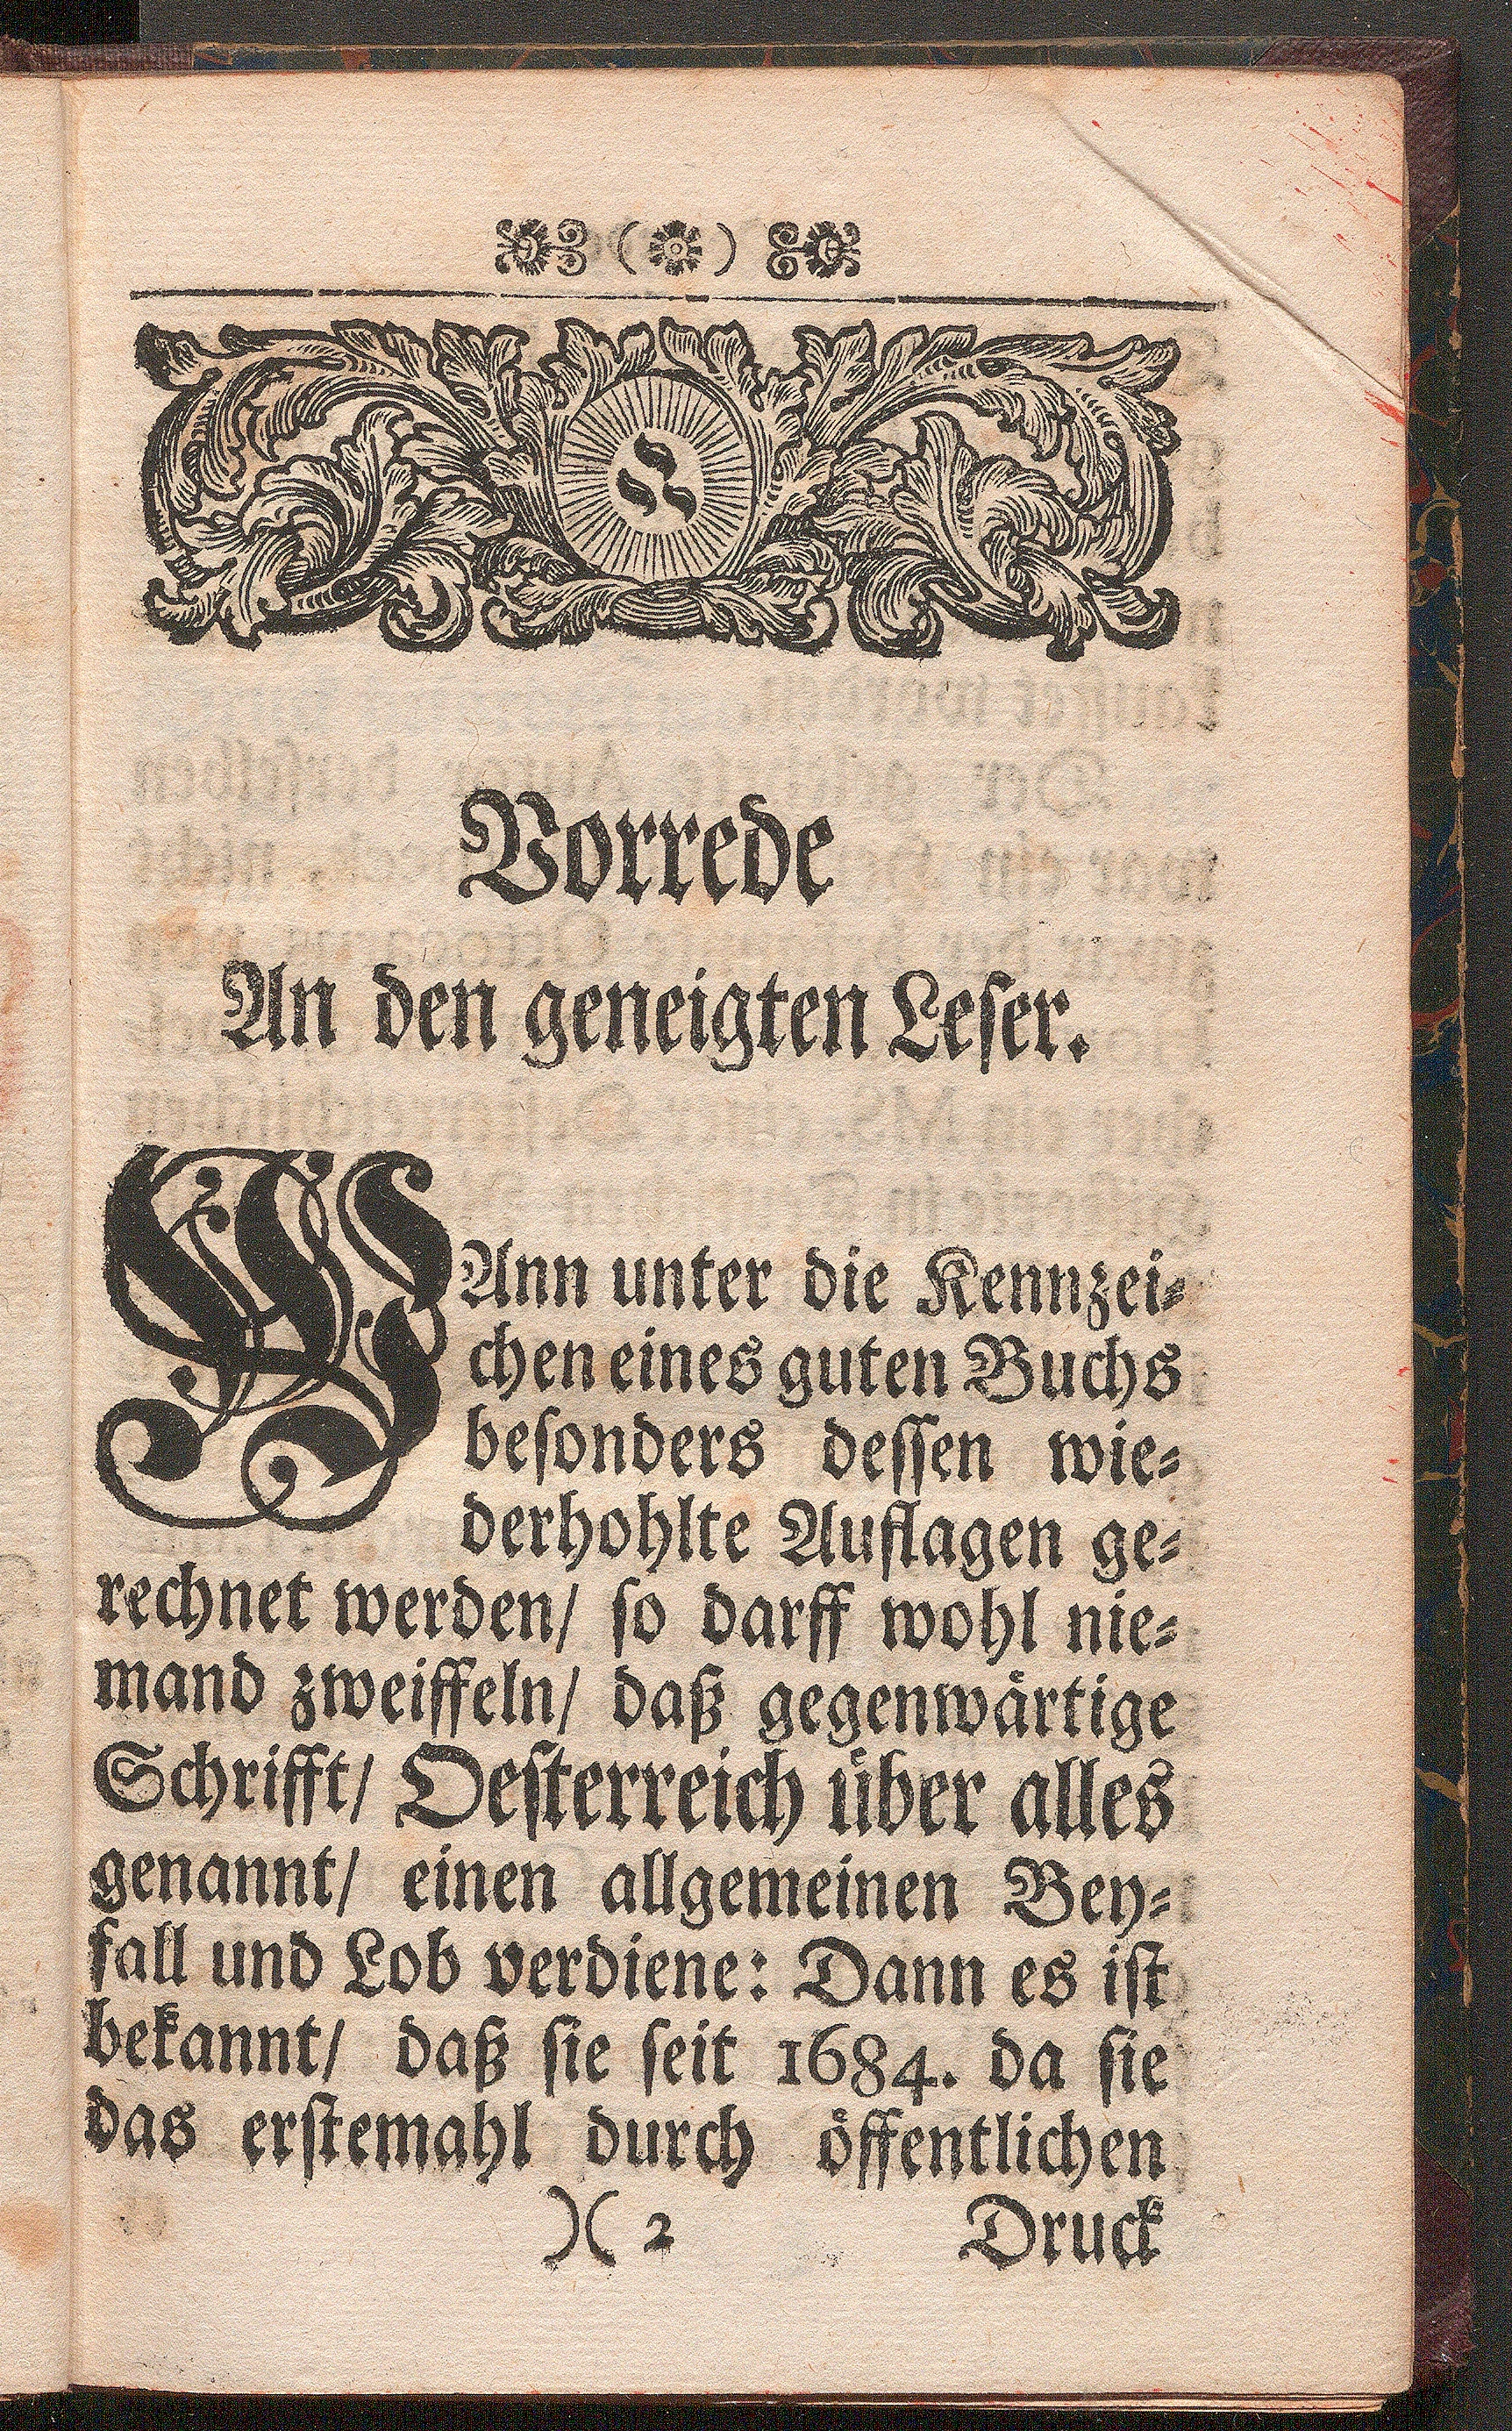 Vorrede
An den geneigten Leser.
WAnn unter die Kennzei⸗
chen eines guten Buchs
besonders dessen wie⸗
derhohlte Auflagen ge⸗
rechnet werden/ so darff wohl nie⸗
mand zweiffeln/ daß gegenwärtige
Schrifft/ Oesterreich über alles
genannt/ einen allgemeinen Bey⸗
fall und Lob verdiene: Dann es ist
bekannt/ daß sie seit 1684. da sie
das erstemahl durch öffentlichen
)( 2 Druck